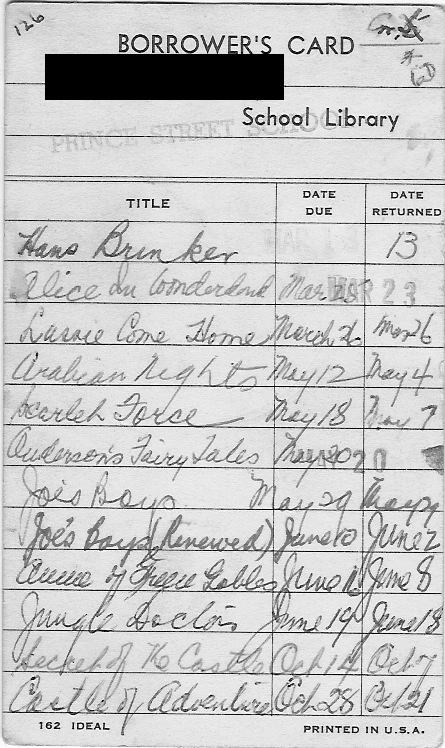 126
BORROWER'S CARD
School Library
PRINCE STREET SCHOOL
TITLE DATE DUE DATE RETURNED
Hans Brinker 13
Alice In Wonderland Mar 23
Lassie Come Home March 26 Mar 26
Arabian Nights May 12 May 4
Scarlet Force May 18 May 7
Anderson's Fairy Tales May 20 20
Jo's Boys May 29 May 29
Jo's Boys (Renewed) June 10 June 2
Anne of Green Gables June 16 June 8
Jungle Doctors June 19 June 18
Secret of The Castle Oct 14 Oct 7
Castle of Adventure Oct 28 Oct 21
162 IDEAL PRINTED IN U.S.A.